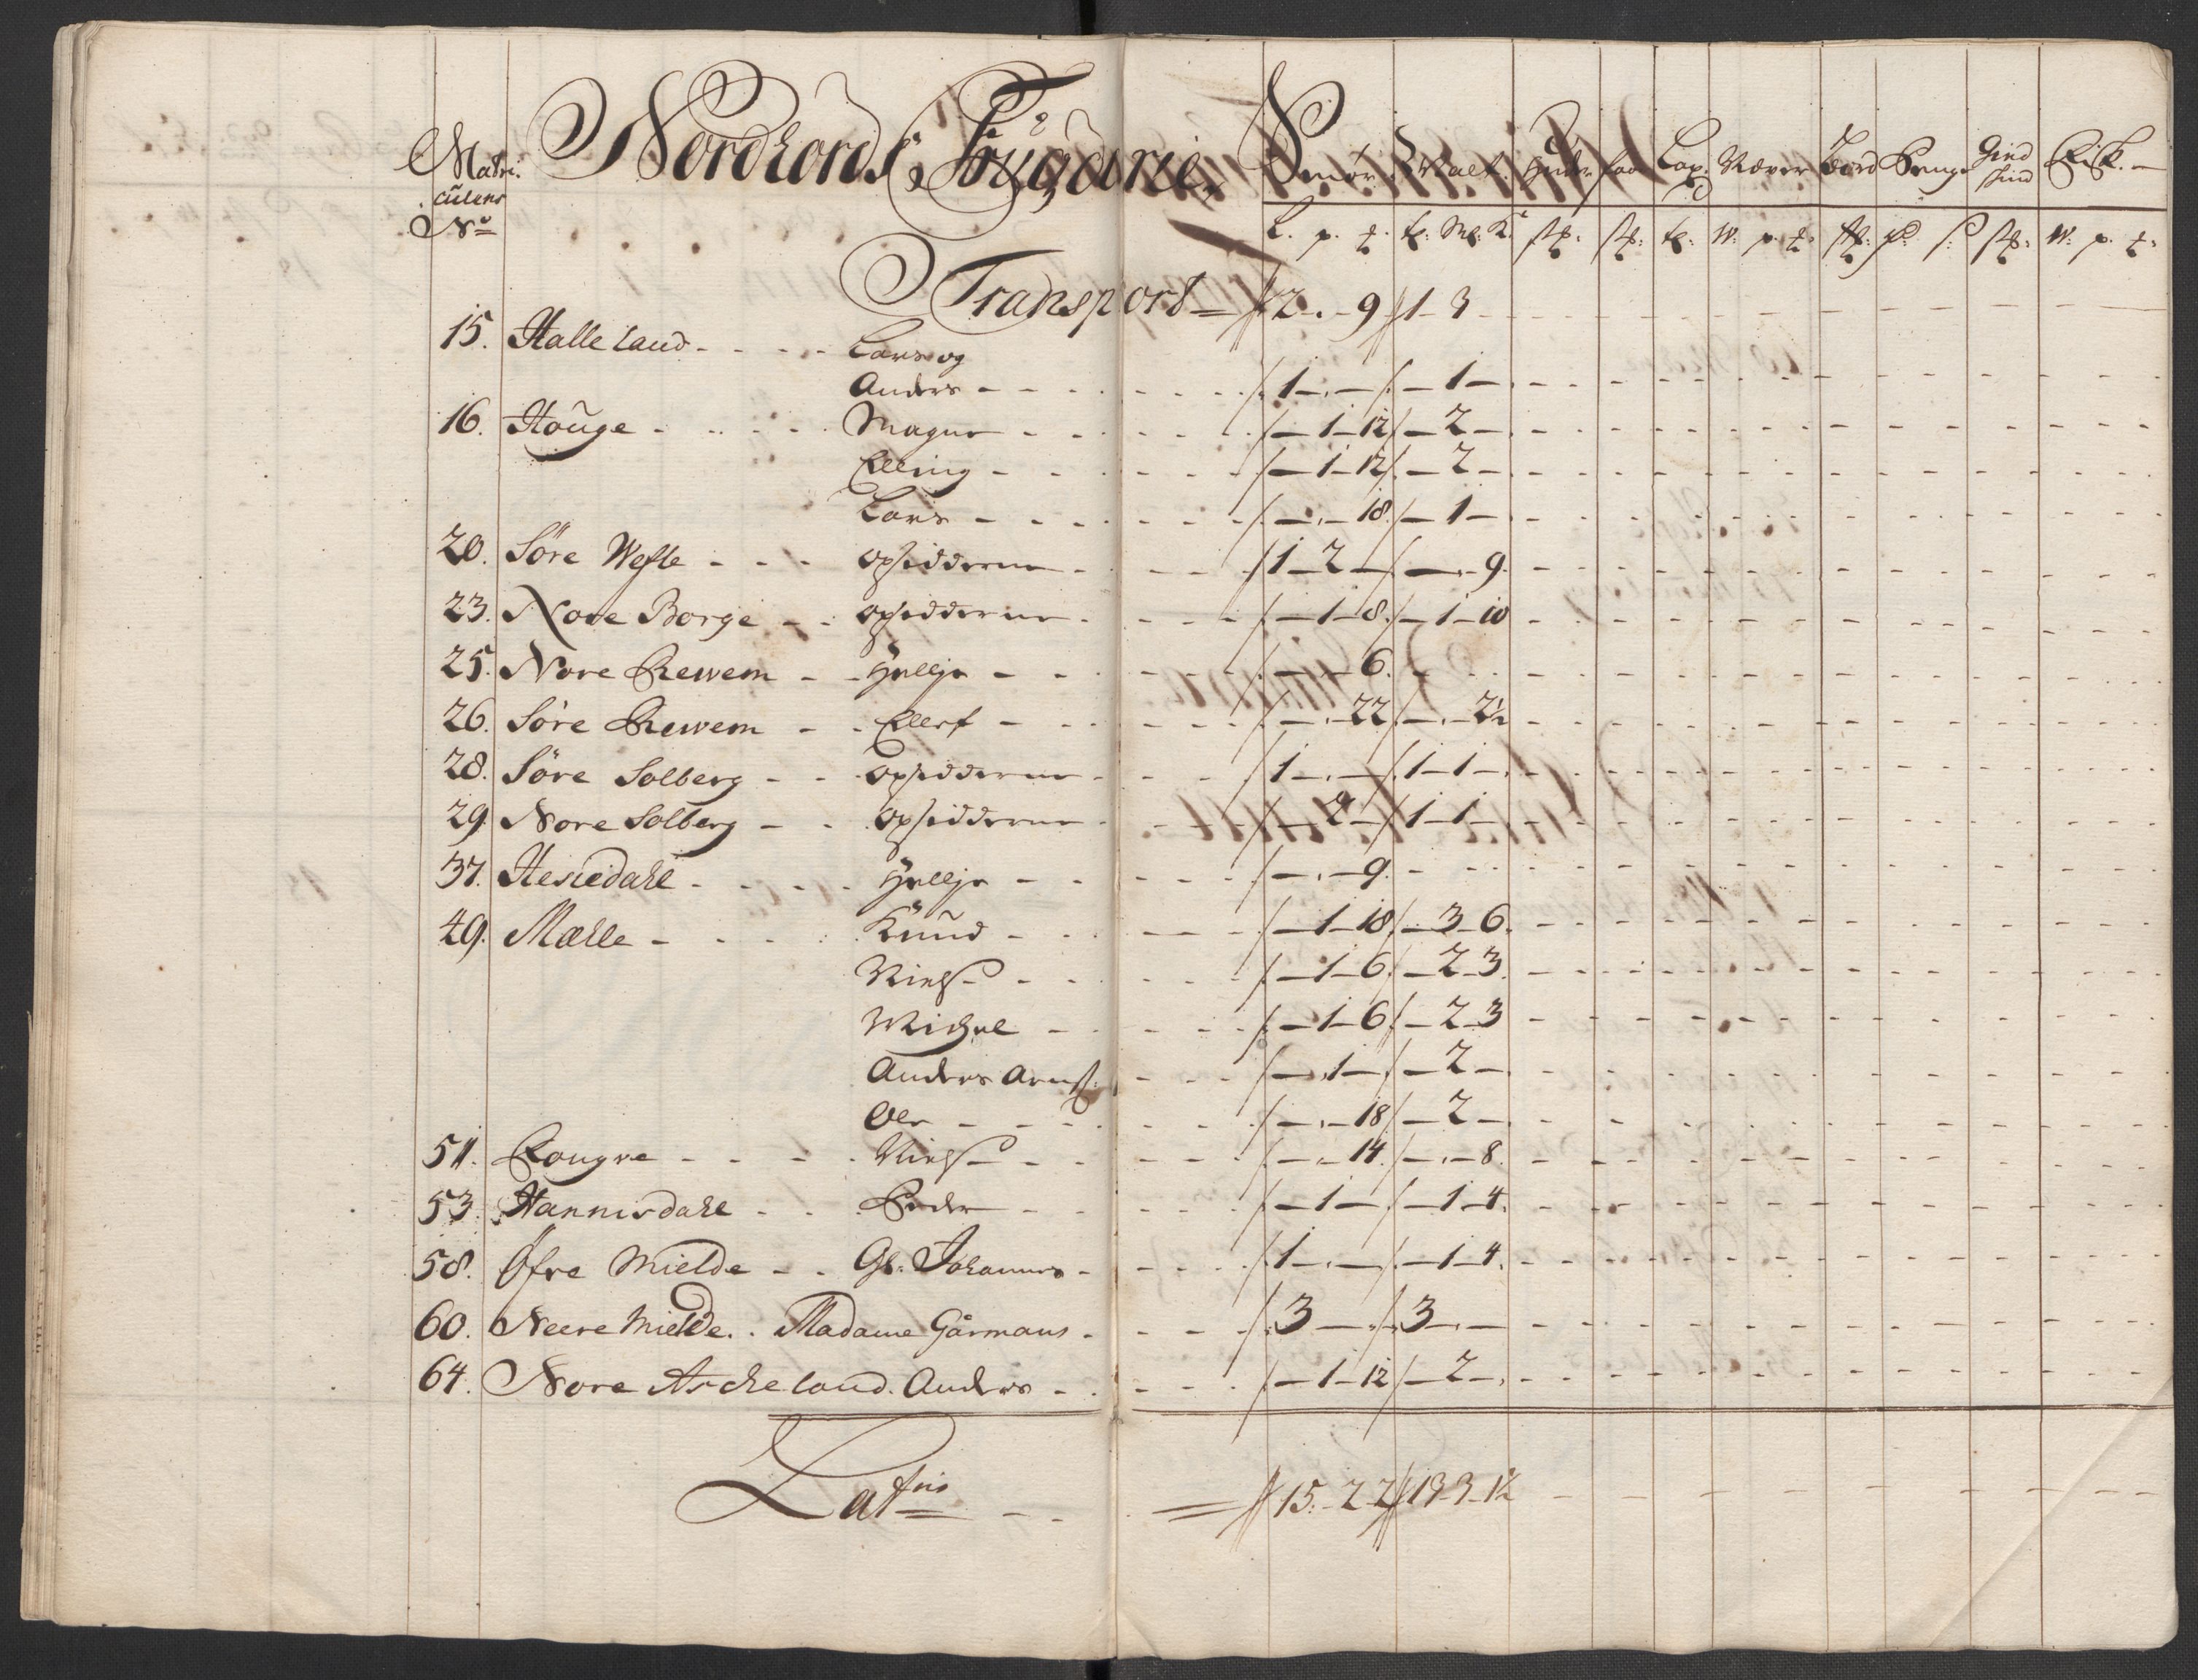 Matri: Nordhords Fougderie, Smør. Malt. Huder Laup. Næver Bord Penge Gied skind Fisk. –
culens
No L. p. t. t: Ml: K: stk: stk: t: W: p. t: stk: p: s stk: W: p. t:
Transport = 2. – 9 1 3
15. Halleland – Lars og
Anders – 1. – – 1 –
16. Houge – Magne – – 1 – 12 – 2 –
Elling – – 1 – 12 – 2 –
Lars – – . – 18. – 1 –
20. Søre Wefle – opsidderne – 1 – 2 – – . – 9.
23. Nore Borge – opsidderne – – 1 – 8. – 1 – 10
25. Nore Rewem – Hellje – – – 6.
26. Søre Rewem – Ellef – – . – 22. – . – 2½
28. Søre Solberg – opsidderne – 1 – . – 1 – 1 –
29. Nore Solberg – opsidderne – – 2 – 1 – 1 –
37. Heskedahl – Hellje – – . – 9.
49. Mæhle – Knud – – 1 – 18 – 3 – 6.
Niels – – 1 – 6. – 2 – 3.
Michel – – 1 – 6 – 2 – 3
Anders Arness: – 1 – – 2 –
Ole – – . – 18 – 2 –
51. Rougne – Niels – – . – 14. – . – 8.
53. Hannisdahl – Peder – – 1 – – 1 – 4.
58. Øfre Mielde – Gl: Johannes – 1 – . – – 1 – 4.
60. Neere Mielde. . Madame Garmans – 3 – . – 3 – . –
64. Nore Ascheland. Anders – – 1 – 12 – 2 –
Latus – – = 15. – 2 2 13 – 3 – 1½